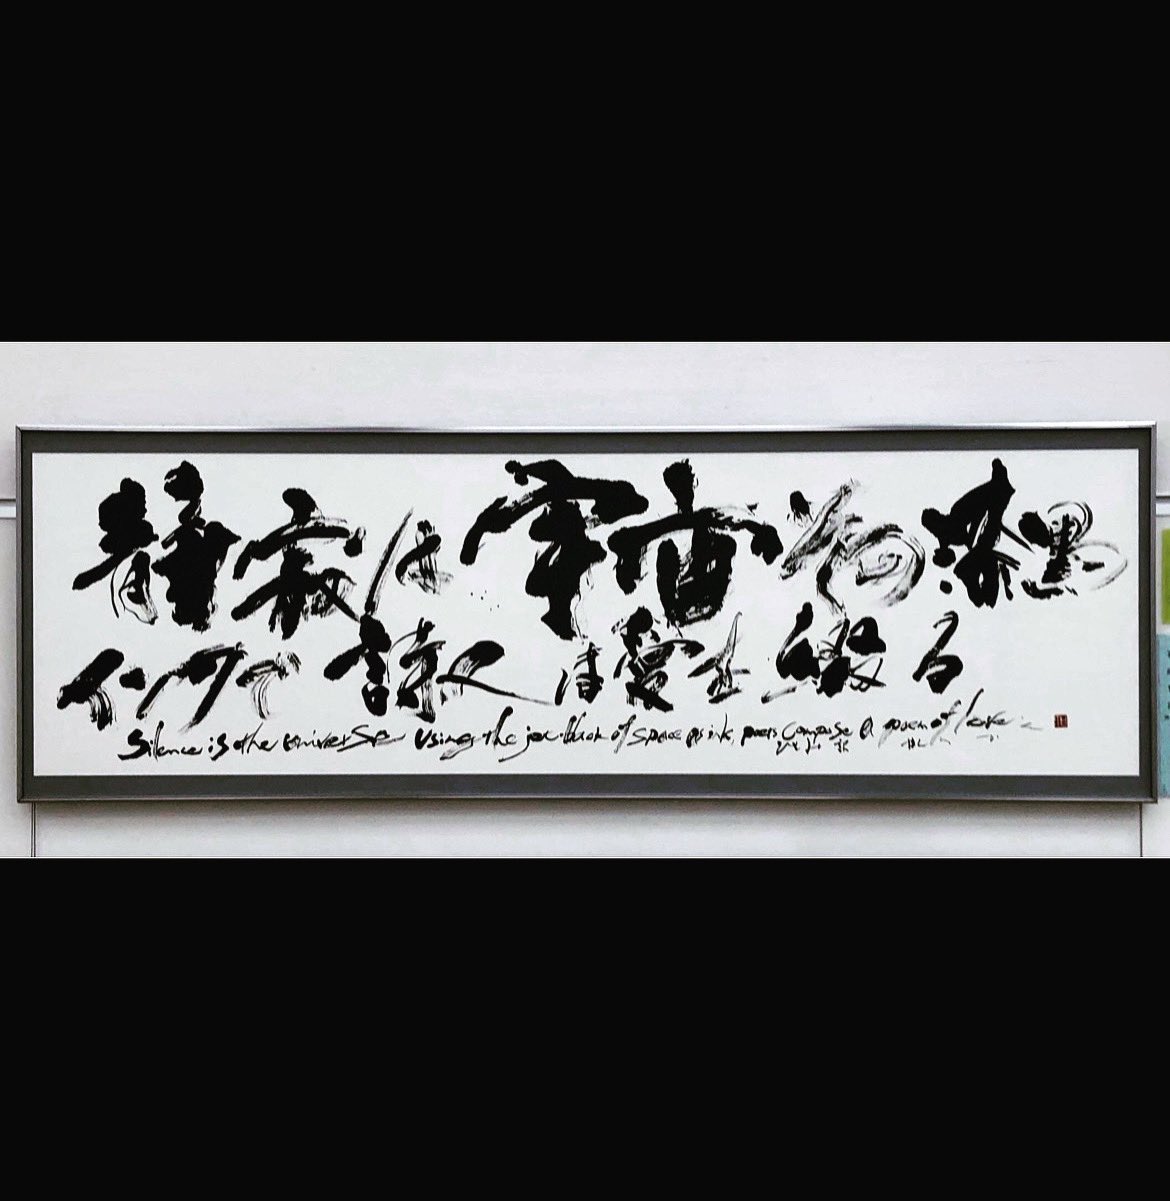 静寂は宇宙その漆黒
インクで詩人は愛を綴る
Silence is the universe Using the jet-black of space as ink, poets compose a poem of love